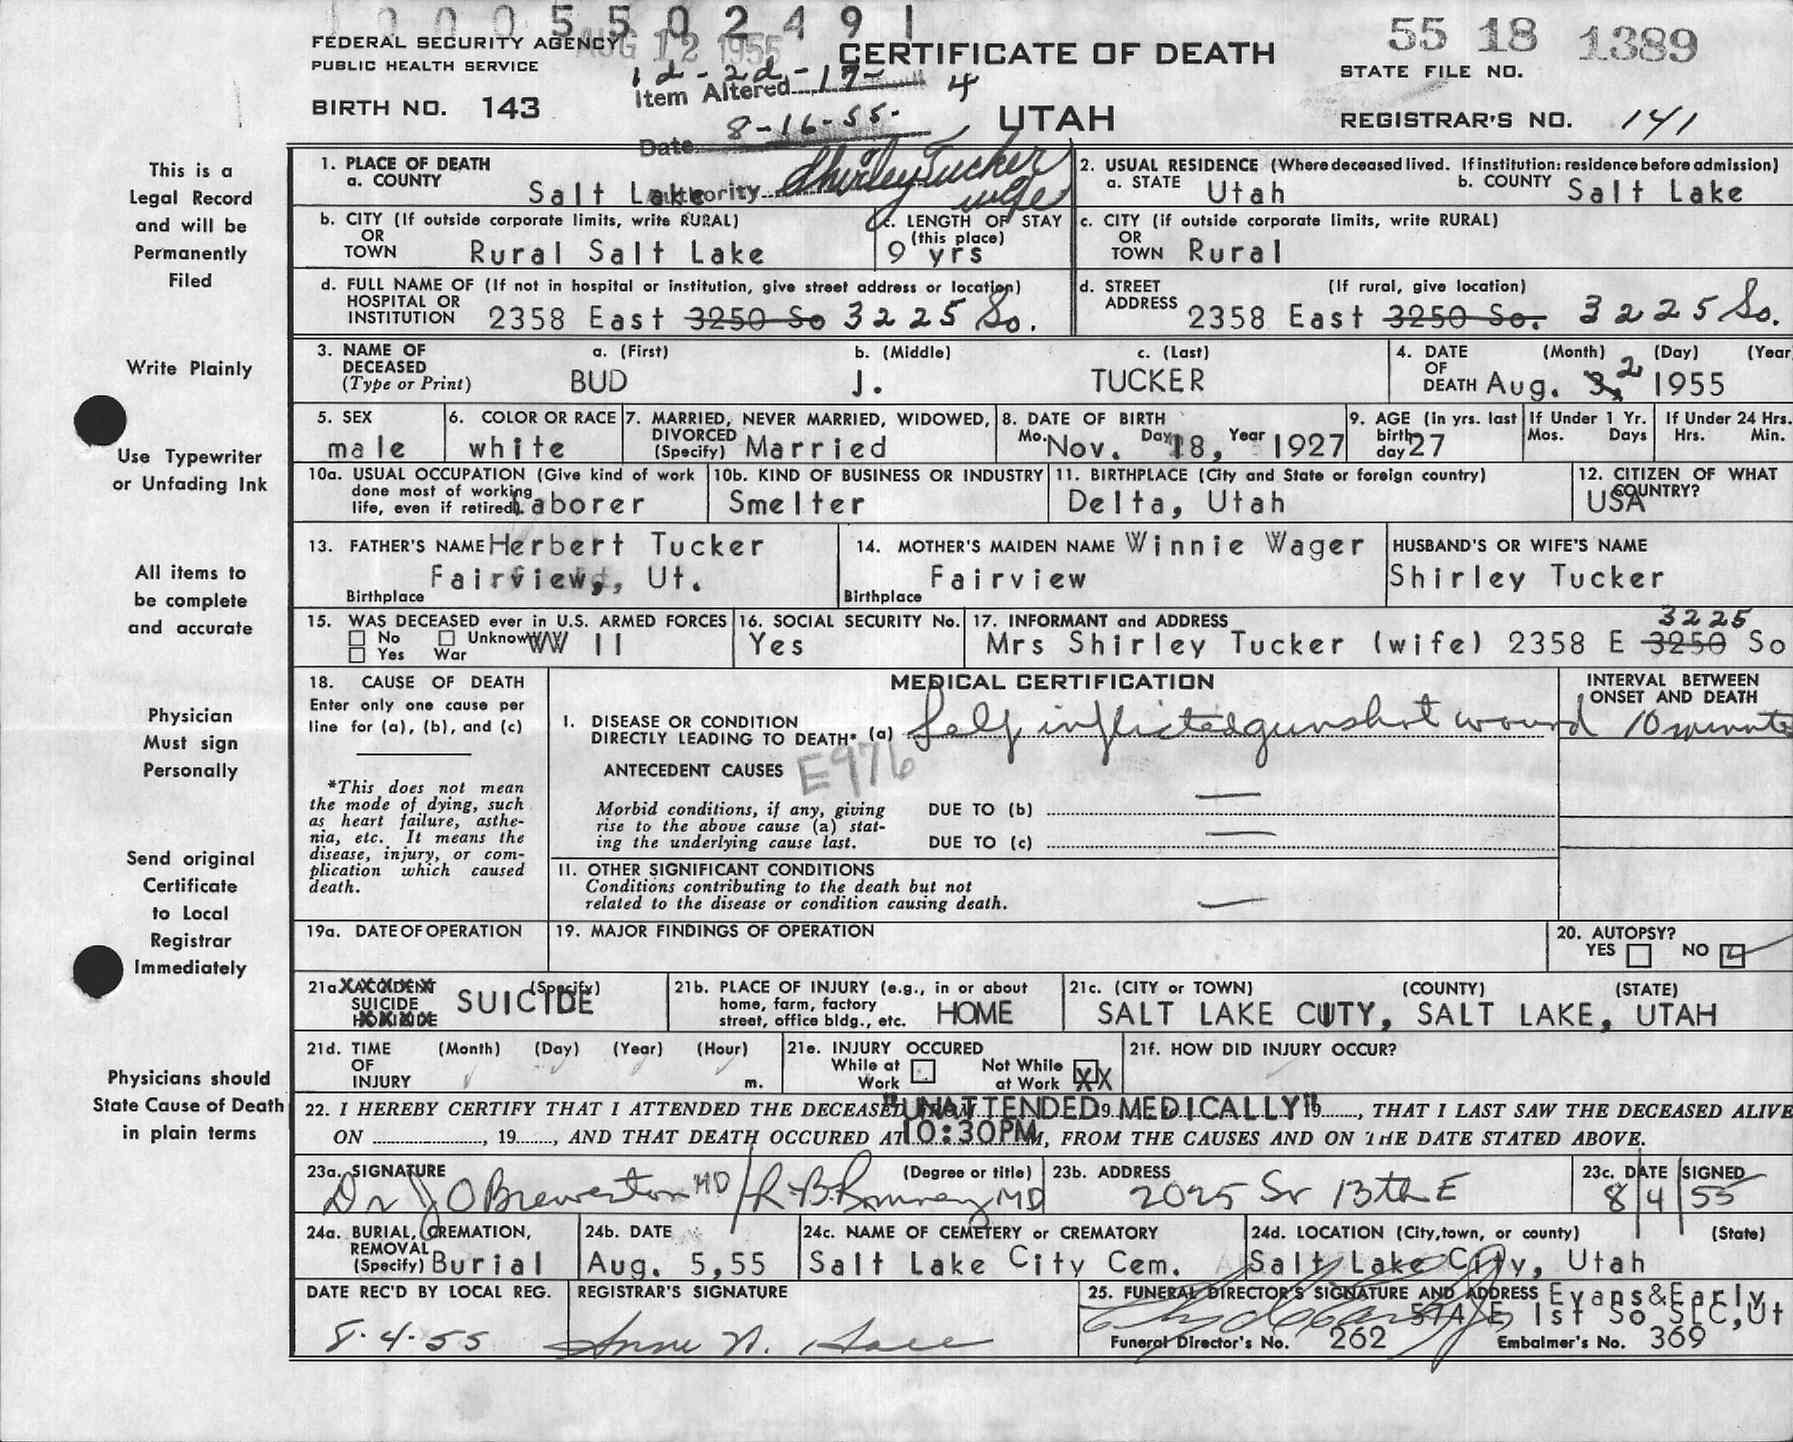 10005502491
FEDERAL SECURITY AGENCY
PUBLIC HEALTH SERVICE
AUG 12 1955
CERTIFICATE OF DEATH
55 18 1389
STATE FILE NO.
BIRTH NO. 143
Item Altered 1d-2d-17-4
Date 8-16-55-
Authority Shirley Tucker wife
UTAH
REGISTRAR'S NO. 141
This is a
Legal Record
and will be
Permanently
Filed
Write Plainly
Use Typewriter
or Unfading Ink
All items to
be complete
and accurate
Physician
Must sign
Personally
Send original
Certificate
to Local
Registrar
Immediately
Physicians should
State Cause of Death
in plain terms
1. PLACE OF DEATH
a. COUNTY Salt Lake
2. USUAL RESIDENCE (Where deceased lived. If institution: residence before admission)
a. STATE Utah b. COUNTY Salt Lake
b. CITY (If outside corporate limits, write RURAL)
OR
TOWN Rural Salt Lake
c. LENGTH OF STAY
(this place)
9 yrs
c. CITY (if outside corporate limits, write RURAL)
OR
TOWN Rural
d. FULL NAME OF (If not in hospital or institution, give street address or location)
HOSPITAL OR
INSTITUTION 2358 East 3250 So 3225 So.
d. STREET (If rural, give location)
ADDRESS 2358 East 3250 So. 3225 So.
3. NAME OF DECEASED
(Type or Print)
a. (First) b. (Middle) c. (Last)
BUD J. TUCKER
4. DATE (Month) (Day) (Year
OF
DEATH Aug. 3, 2 1955
5. SEX
male
6. COLOR OR RACE
white
7. MARRIED, NEVER MARRIED, WIDOWED,
DIVORCED
(Specify) Married
8. DATE OF BIRTH
Mo. Nov. Day 18, Year 1927
9. AGE (in yrs. last
birth
day 27
If Under 1 Yr.
Mos. Days
If Under 24 Hrs.
Hrs. Min.
10a. USUAL OCCUPATION (Give kind of work
done most of working
life, even if retired) Laborer
10b. KIND OF BUSINESS OR INDUSTRY
Smelter
11. BIRTHPLACE (City and State or foreign country)
Delta, Utah
12. CITIZEN OF WHAT
COUNTRY?
USA
13. FATHER'S NAME Herbert Tucker
Birthplace Fairview, Ut.
14. MOTHER'S MAIDEN NAME Winnie Wager
Birthplace Fairview
HUSBAND'S OR WIFE'S NAME
Shirley Tucker
15. WAS DECEASED ever in U.S. ARMED FORCES
No Unknown
Yes War WW II
16. SOCIAL SECURITY No.
Yes
17. INFORMANT and ADDRESS 3225
Mrs Shirley Tucker (wife) 2358 E 3250 So
18. CAUSE OF DEATH
Enter only one cause per
line for (a), (b), and (c)
*This does not mean
the mode of dying, such
as heart failure, asthe-
nia, etc. It means the
disease, injury, or com-
plication which caused
death.
MEDICAL CERTIFICATION
INTERVAL BETWEEN
ONSET AND DEATH
I. DISEASE OR CONDITION
DIRECTLY LEADING TO DEATH* (a) Self inflicted gunshot wound 10 minute
ANTECEDENT CAUSES E976
Morbid conditions, if any, giving
rise to the above cause (a) stat-
ing the underlying cause last.
DUE TO (b) —
DUE TO (c) —
II. OTHER SIGNIFICANT CONDITIONS
Conditions contributing to the death but not
related to the disease or condition causing death. —
19a. DATE OF OPERATION
19. MAJOR FINDINGS OF OPERATION
20. AUTOPSY?
YES NO
21a. ACCIDENT (Specify)
SUICIDE SUICIDE
HOMICIDE
21b. PLACE OF INJURY (e.g., in or about
home, farm, factory
street, office bldg., etc. HOME
21c. (CITY or TOWN) (COUNTY) (STATE)
SALT LAKE CITY, SALT LAKE, UTAH
21d. TIME (Month) (Day) (Year) (Hour)
OF
INJURY m.
21e. INJURY OCCURED
While at Work
Not While at Work XX
21f. HOW DID INJURY OCCUR?
22. I HEREBY CERTIFY THAT I ATTENDED THE DECEASED FROM "UNATTENDED MEDICALLY" 19......, THAT I LAST SAW THE DECEASED ALIVE
ON ............, 19......, AND THAT DEATH OCCURED AT 10:30PM, FROM THE CAUSES AND ON THE DATE STATED ABOVE.
23a. SIGNATURE (Degree or title)
Dr J O Brewerton MD / R.B. Romney MD
23b. ADDRESS
2025 So 13th E
23c. DATE SIGNED
8/4/55
24a. BURIAL, CREMATION,
REMOVAL
(Specify) Burial
24b. DATE
Aug. 5,55
24c. NAME OF CEMETERY or CREMATORY
Salt Lake City Cem.
24d. LOCATION (City, town, or county) (State)
Salt Lake City, Utah
DATE REC'D BY LOCAL REG.
8-4-55
REGISTRAR'S SIGNATURE
25. FUNERAL DIRECTOR'S SIGNATURE AND ADDRESS Evans&Early
574 E 1st So SLC,Ut
Funeral Director's No. 262 Embalmer's No. 369